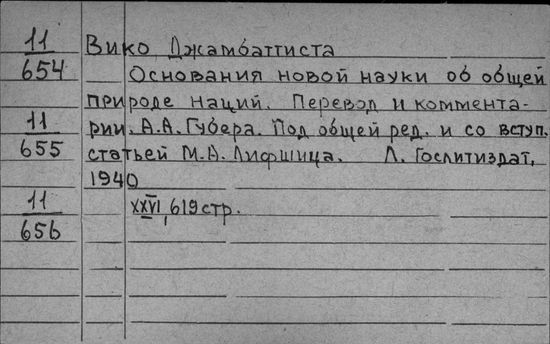 11 Вико Джамбаттиста
654 Основания новой науки об общей
природе наций. Перевод и коммента-
11 рии. А.А. Губера. Под общей ред. и со вступ.
655 статьей М.А. Лифшица. Л. Гослитиздат,
1940
11 XXVI, 619 стр.
656